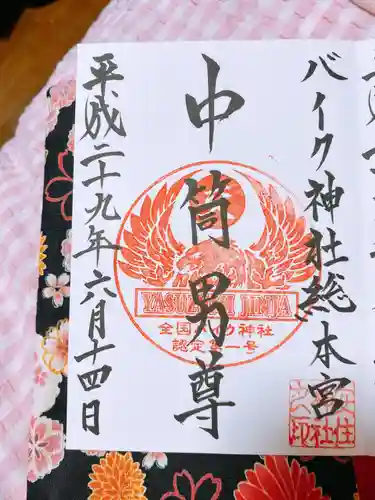 バイク神社総本宮
中筒男尊
YASUZUMI JINJA
全国バイク神社
認定第一号
平成二十九年六月十四日
安住神社印